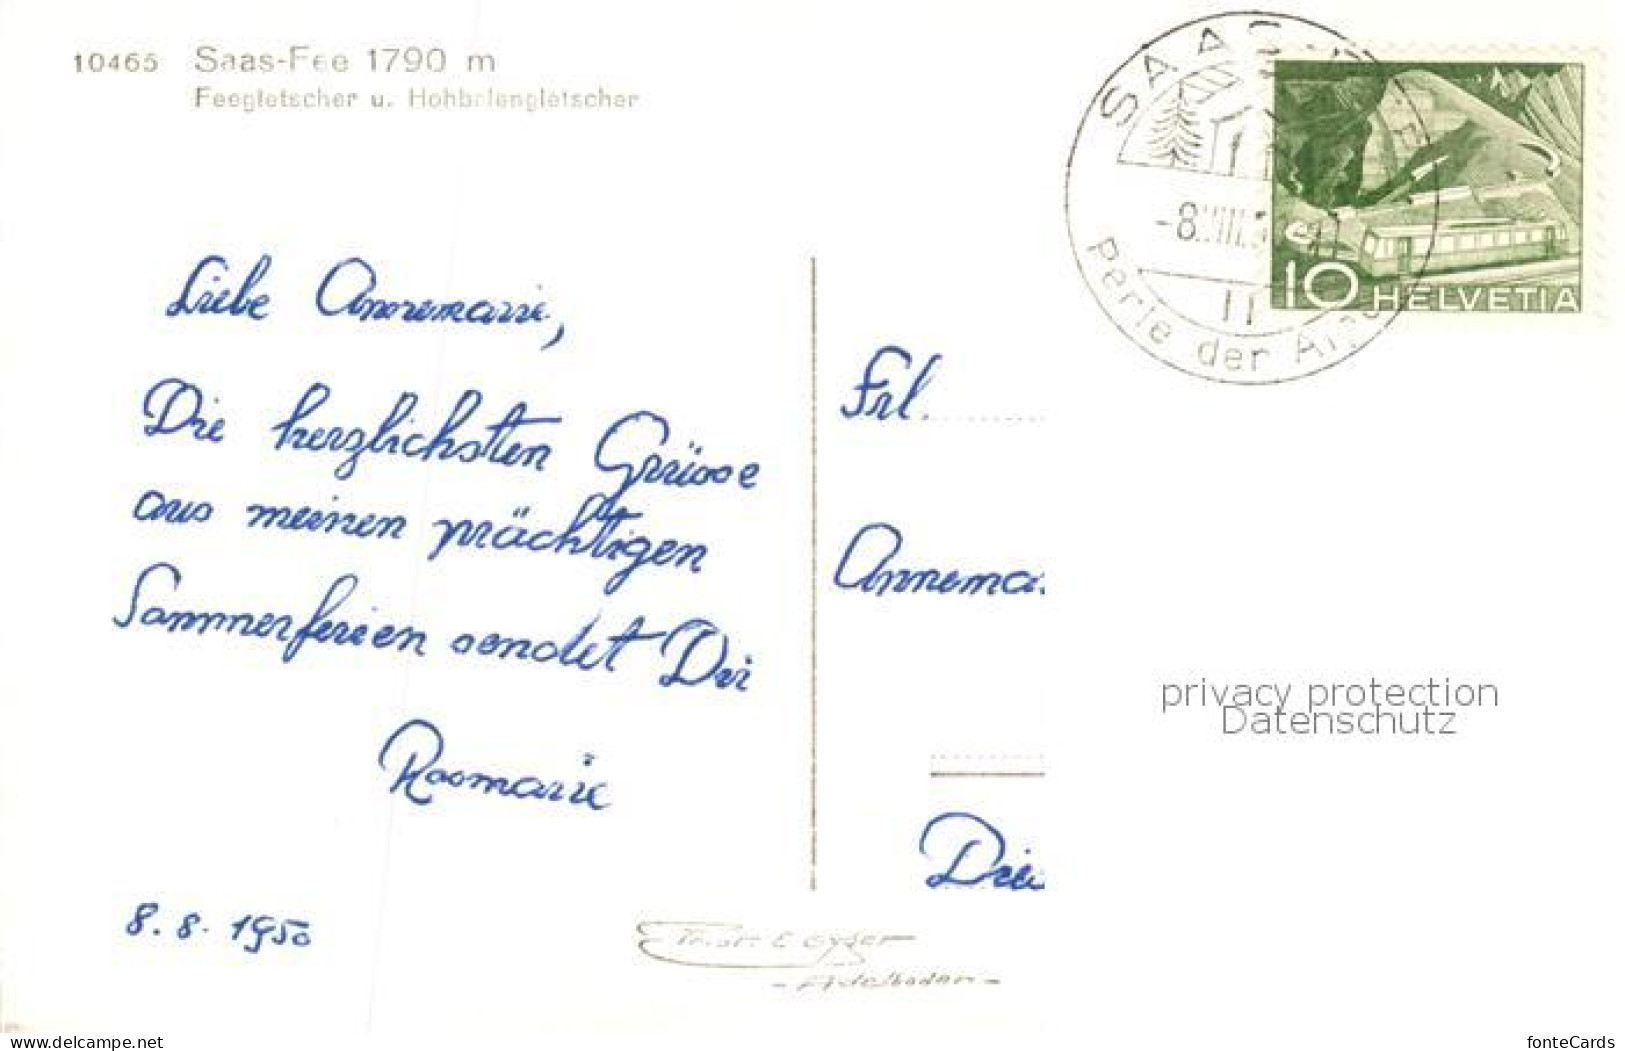 10465 Saas-Fee 1790 m
Feegletscher u. Hohbalengletscher
SAAS-FEE
-8.VIII.
Perle der Alpen
10 HELVETIA
Liebe Annemarie,
Die herzlichsten Grüsse
aus meinen prächtigen
Sommerferien sendet Dir
Rosmarie
8.8.1950
Frl.
Annema
privacy protection
Datenschutz
Phot. E Gyger
- Adelboden -
www.delcampe.net
fonteCards